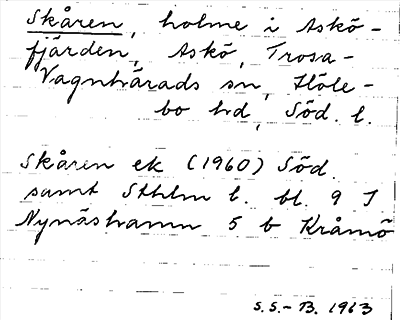 Skåren, holme i Askö-
fjärden, Askö, Trosa-
Vagnhärads sn, Höle-
bo hd, Söd. l.
Skåren ek (1960) Söd.
samt Sthlm l. bl. 9 I
Nynäshamn 5 b Kråmö
S.S.-B. 1963